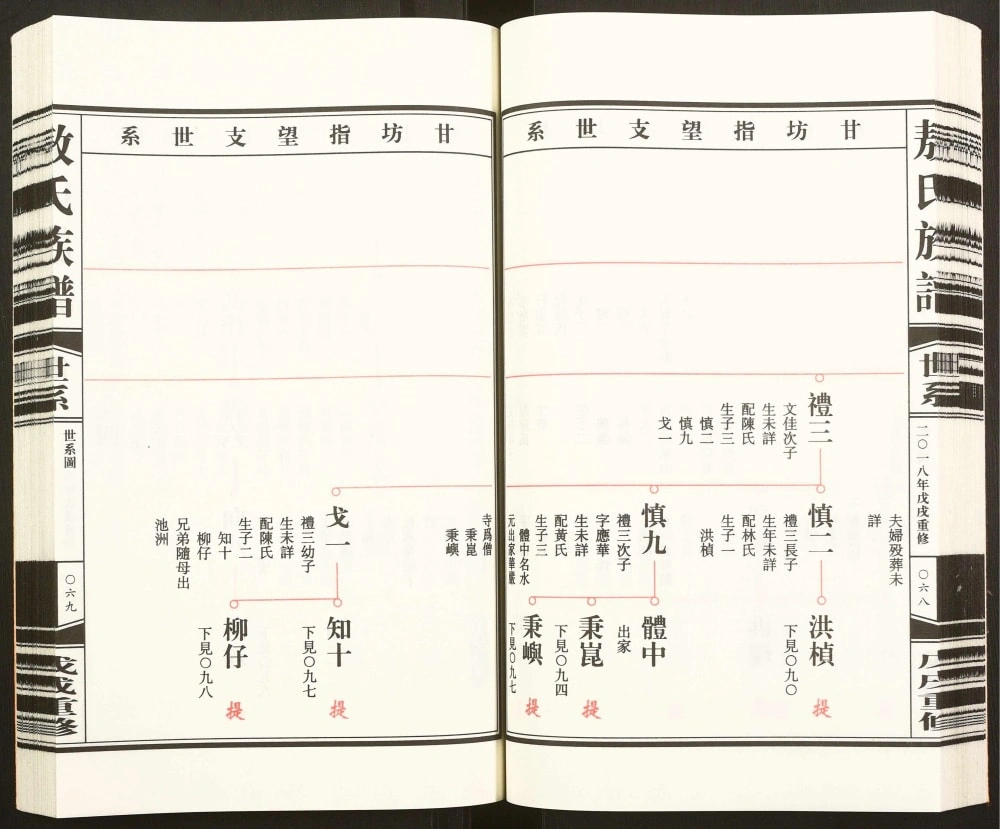 敖氏族譜
世系
二〇一八年戊戌重修
〇六八
戊戌重修
甘坊指望支世系
夫婦歿葬未
詳
禮三
文佳次子
生未詳
配陳氏
生子三
慎二
慎九
戈一
慎二
禮三長子
生年未詳
配林氏
生子一
洪楨
慎九
禮三次子
字應華
生未詳
配黃氏
生子三
體中名水
元出家華嚴
洪楨
下見〇九〇
提
體中
出家
秉崑
下見〇九四
提
秉嶼
下見〇九七
提
甘坊指望支世系
寺爲僧
秉崑
秉嶼
戈一
禮三幼子
生未詳
配陳氏
生子二
知十
柳仔
兄弟隨母出
池洲
知十
下見〇九七
提
柳仔
下見〇九八
提
敖氏族譜
世系
世系圖
〇六九
戊戌重修